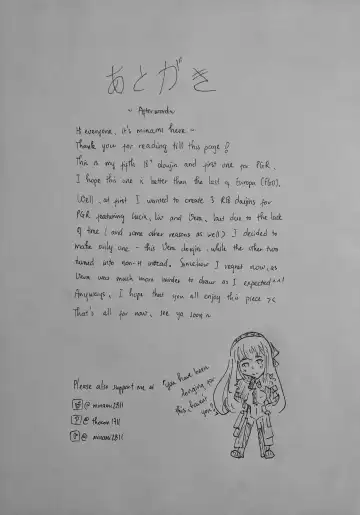 あとがき
~ Afterwords
Hi everyone, it's minami here ~
Thank you for reading till this page!
This is my fifth 18+ doujin and first one for PGR.
I hope this one is better than the last of Europa (PGR).
Well, at first I wanted to create 3 R18 doujins for
PGR featuring Lucia, Liv and Vera, but due to the lack
of time (and some other reasons as well) I decided to
make only one - this Vera doujin, while the other two
turned into non-H instead. Somehow I regret now, as
Vera was much more harder to draw as I expected ^^!
Anyways, I hope that you all enjoy this piece ><
That's all for now, see ya soon ~
Please also support me at
@ minami2811
@
@ minami2811
"You have been
longing for
this, haven't
you?"